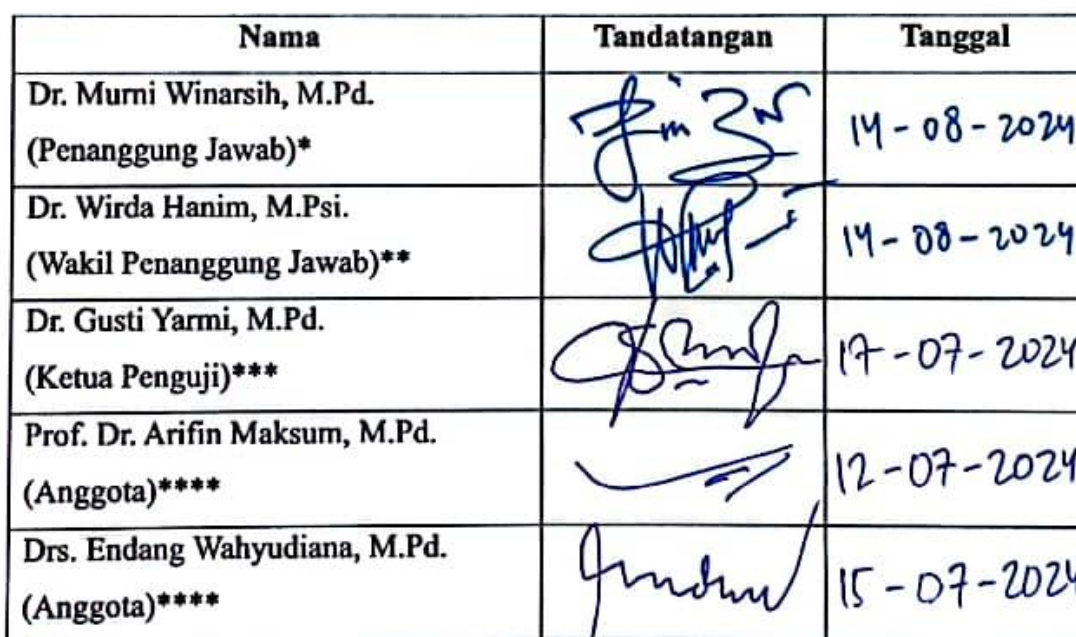 Nama Tandatangan Tanggal
Dr. Murni Winarsih, M.Pd.
(Penanggung Jawab)* 14-08-2024
Dr. Wirda Hanim, M.Psi.
(Wakil Penanggung Jawab)** 14-08-2024
Dr. Gusti Yarmi, M.Pd.
(Ketua Penguji)*** 17-07-2024
Prof. Dr. Arifin Maksum, M.Pd.
(Anggota)**** 12-07-2024
Drs. Endang Wahyudiana, M.Pd.
(Anggota)**** 15-07-2024